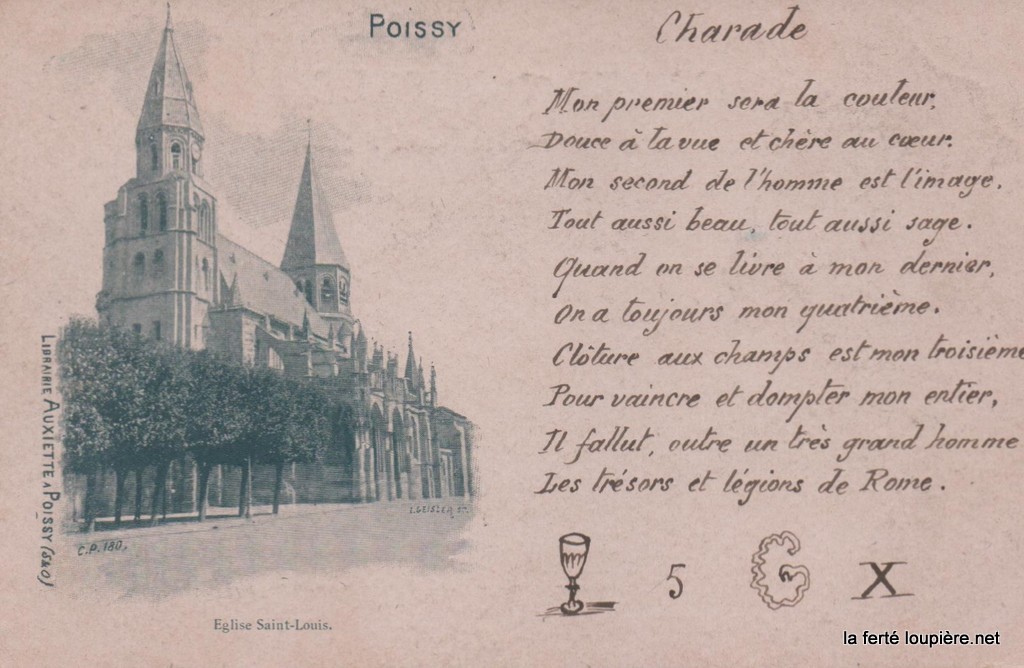 POISSY
Charade
Mon premier sera la couleur,
Douce à la vue et chère au cœur.
Mon second de l'homme est l'image,
Tout aussi beau, tout aussi sage.
Quand on se livre à mon dernier,
On a toujours mon quatrième.
Clôture aux champs est mon troisième
Pour vaincre et dompter mon entier,
Il fallut, outre un très grand homme
Les trésors et légions de Rome.
5 G X
LIBRAIRIE AUXIETTE A POISSY (S&O)
C.P. 180.
L.GEISLER Sc.
Eglise Saint-Louis.
la ferté loupière.net